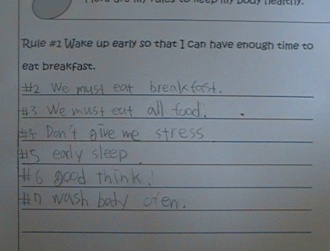 Here are my rules to keep my body healthy.
Rule #1 Wake up early so that I can have enough time to
eat breakfast.
#2 We must eat breakfast.
#3 We must eat all food.
#4 Don't give me stress
#5 early sleep
#6 good think!
#7 wash body ofen.